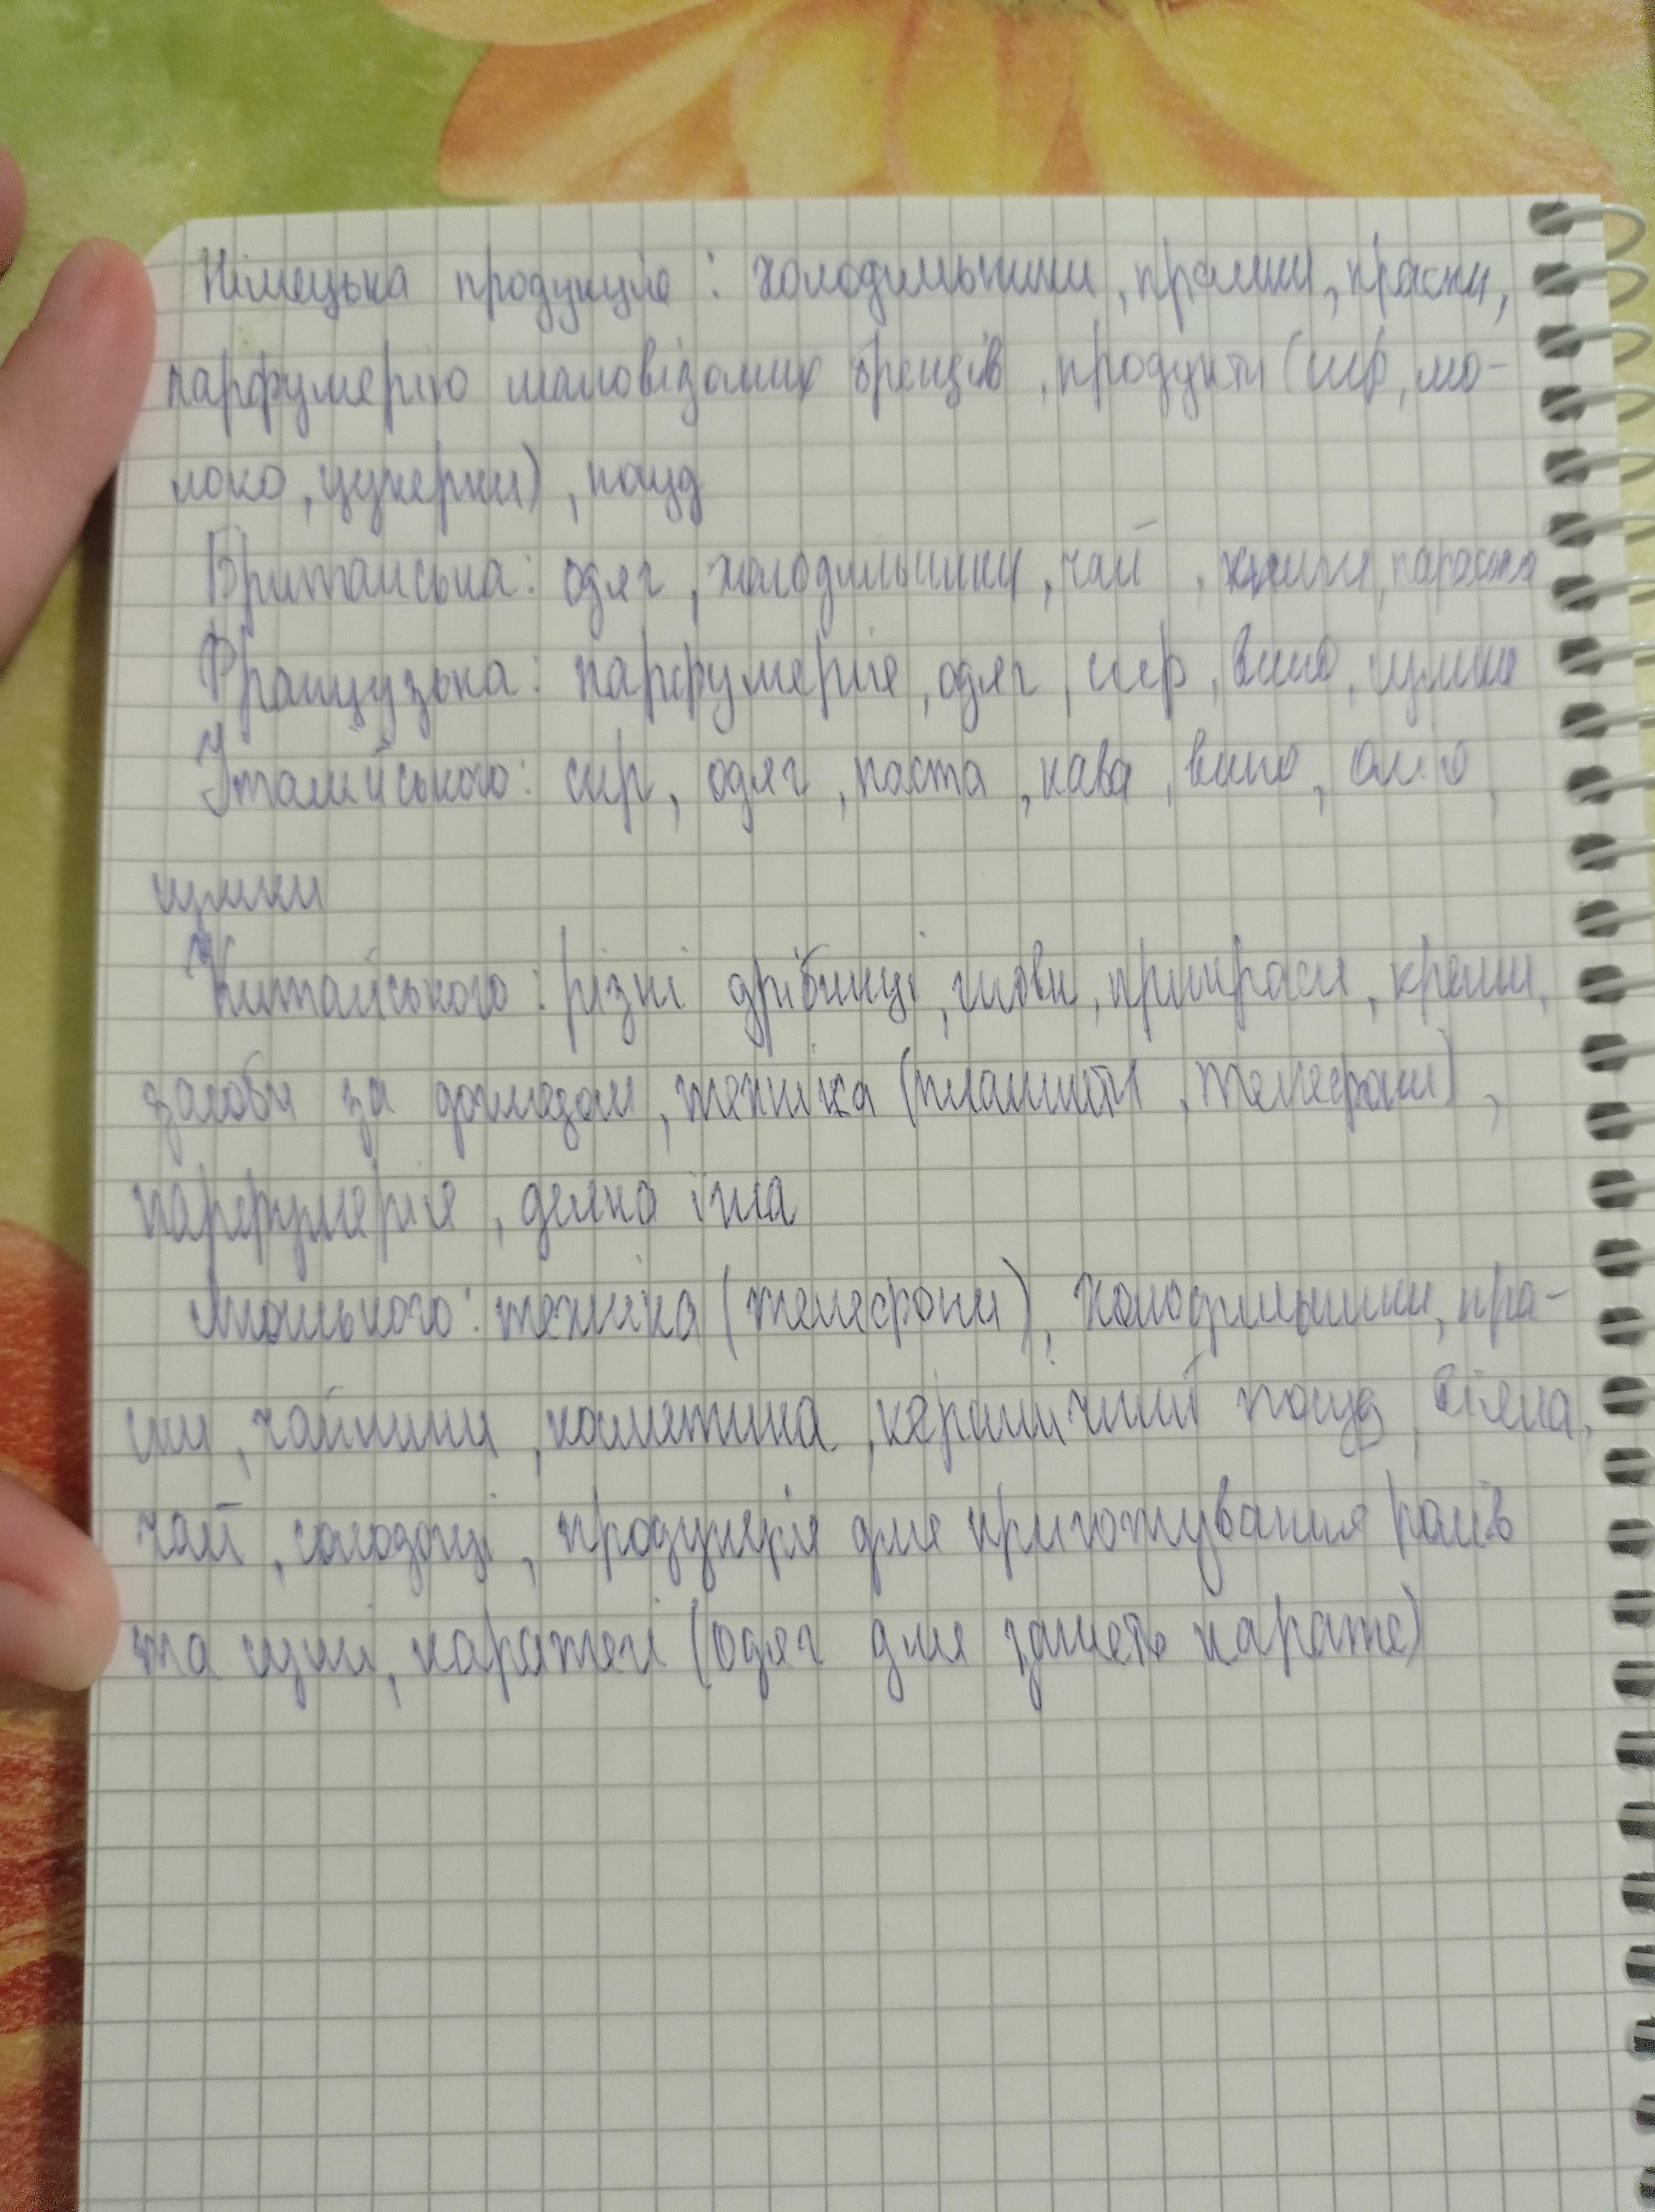 Німецька продукція: холодильники, пралки, праски,
парфумерію маловідомих брендів, продукти (сир, мо-
локо, цукерки), посуд
Британська: одяг, холодильники, чай, книги
Французька: парфумерія, одяг, сир, вино, сумки
Італійського: сир, одяг, паста, кава, вино, олія,
сумки
Китайського: різні дрібниці, приkраси, креми,
засоби за доглядом, техніка (планшети, телефони),
парфумерія, деяка їжа
Японського: техніка (телефони), холодильники, пра-
ски, чайники, косметика, керамічний посуд, віяла,
чай, солодощі, продукція для приготування ролів
та суші, каратегі (одяг для занять карате)